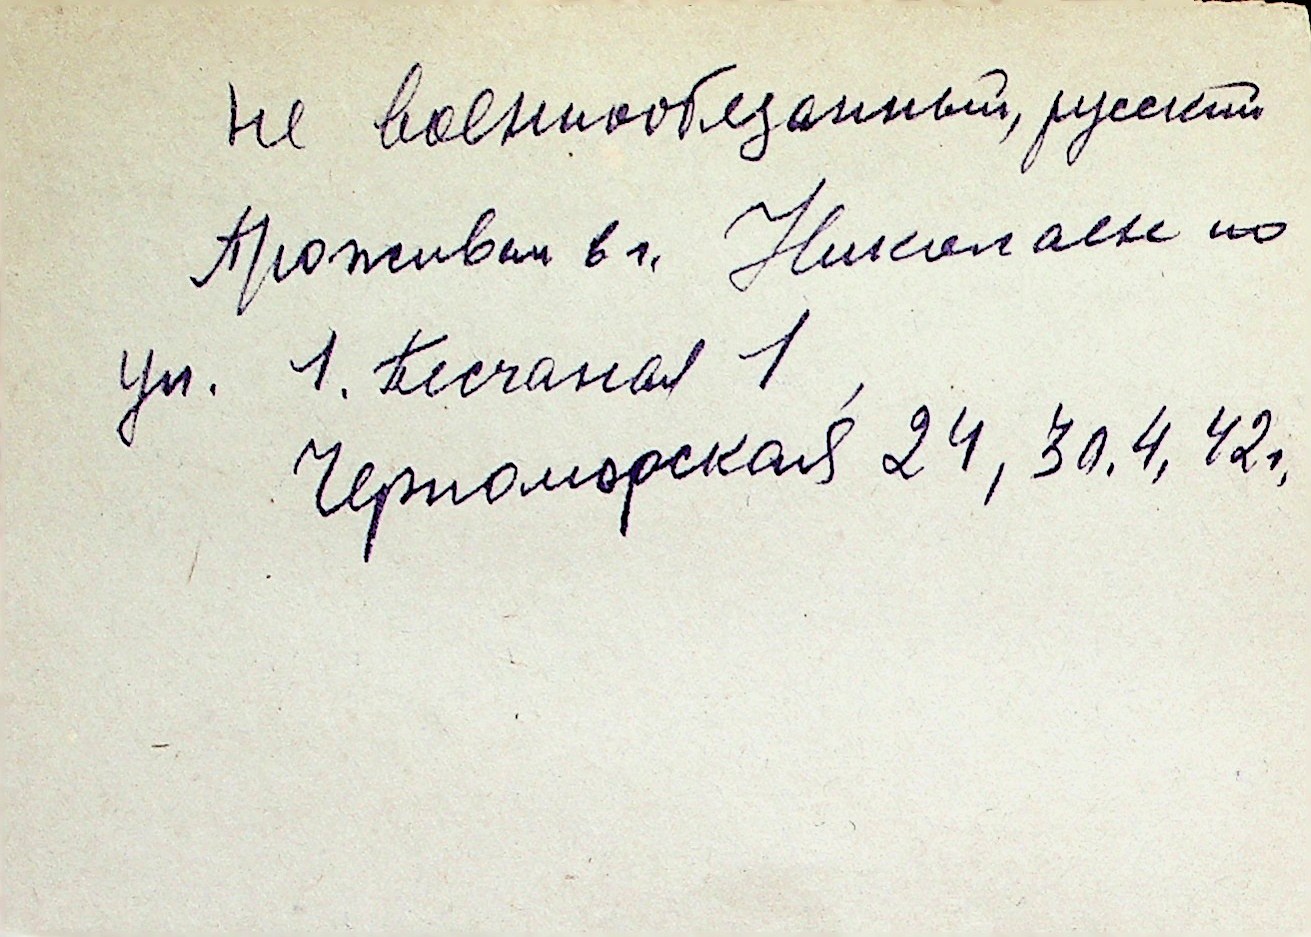 не военнообязанный, русский
Проживал в г. Николаеве по
ул. 1. Песчаная 1,
Черноморская 24, 30.4.42г.